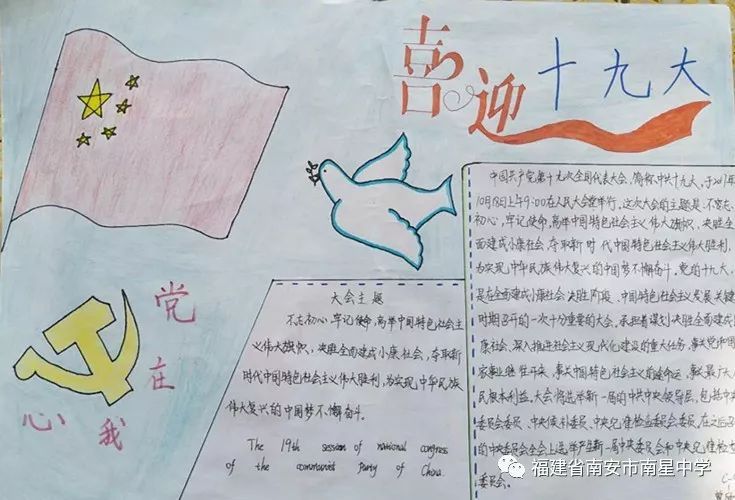 喜迎十九大
中国共产党第十九次全国代表大会,简称中共十九大,于2017年
10月18日上午9:00在人民大会堂举行,这次大会的主题是:不忘
初心,牢记使命,高举中国特色社会主义伟大旗帜,决胜全
面建成小康社会,夺取新时代中国特色社会主义伟大胜利,
为实现中华民族伟大复兴的中国梦不懈奋斗,党的十九大,
是在全面建成小康社会决胜阶段、中国特色社会主义发展关键
时期召开的一次十分重要的大会,承担着谋划决胜全面建成
康社会、深入推进社会主义现代化建设的重大任务,事关党
家事业继往开来,事关中国特色社会主义前途命运,事关最广大
民根本利益,大会将选举新一届的中共中央领导层,包括中
委员会委员、中央候补委员、中央纪律检查委员会委员,在之后
的中央委员会全会上选举产生新一届中央委员会和中央纪律检查
委员会。
大会主题
不忘初心,牢记使命,高举中国特色社会主
义伟大旗帜,决胜全面建成小康社会,夺取新
时代中国特色社会主义伟大胜利,为实现中华民族
伟大复兴的中国梦不懈奋斗。
The 19th session of national congress
of the communist Party of China.
党
在
我
心
福建省南安市南星中学